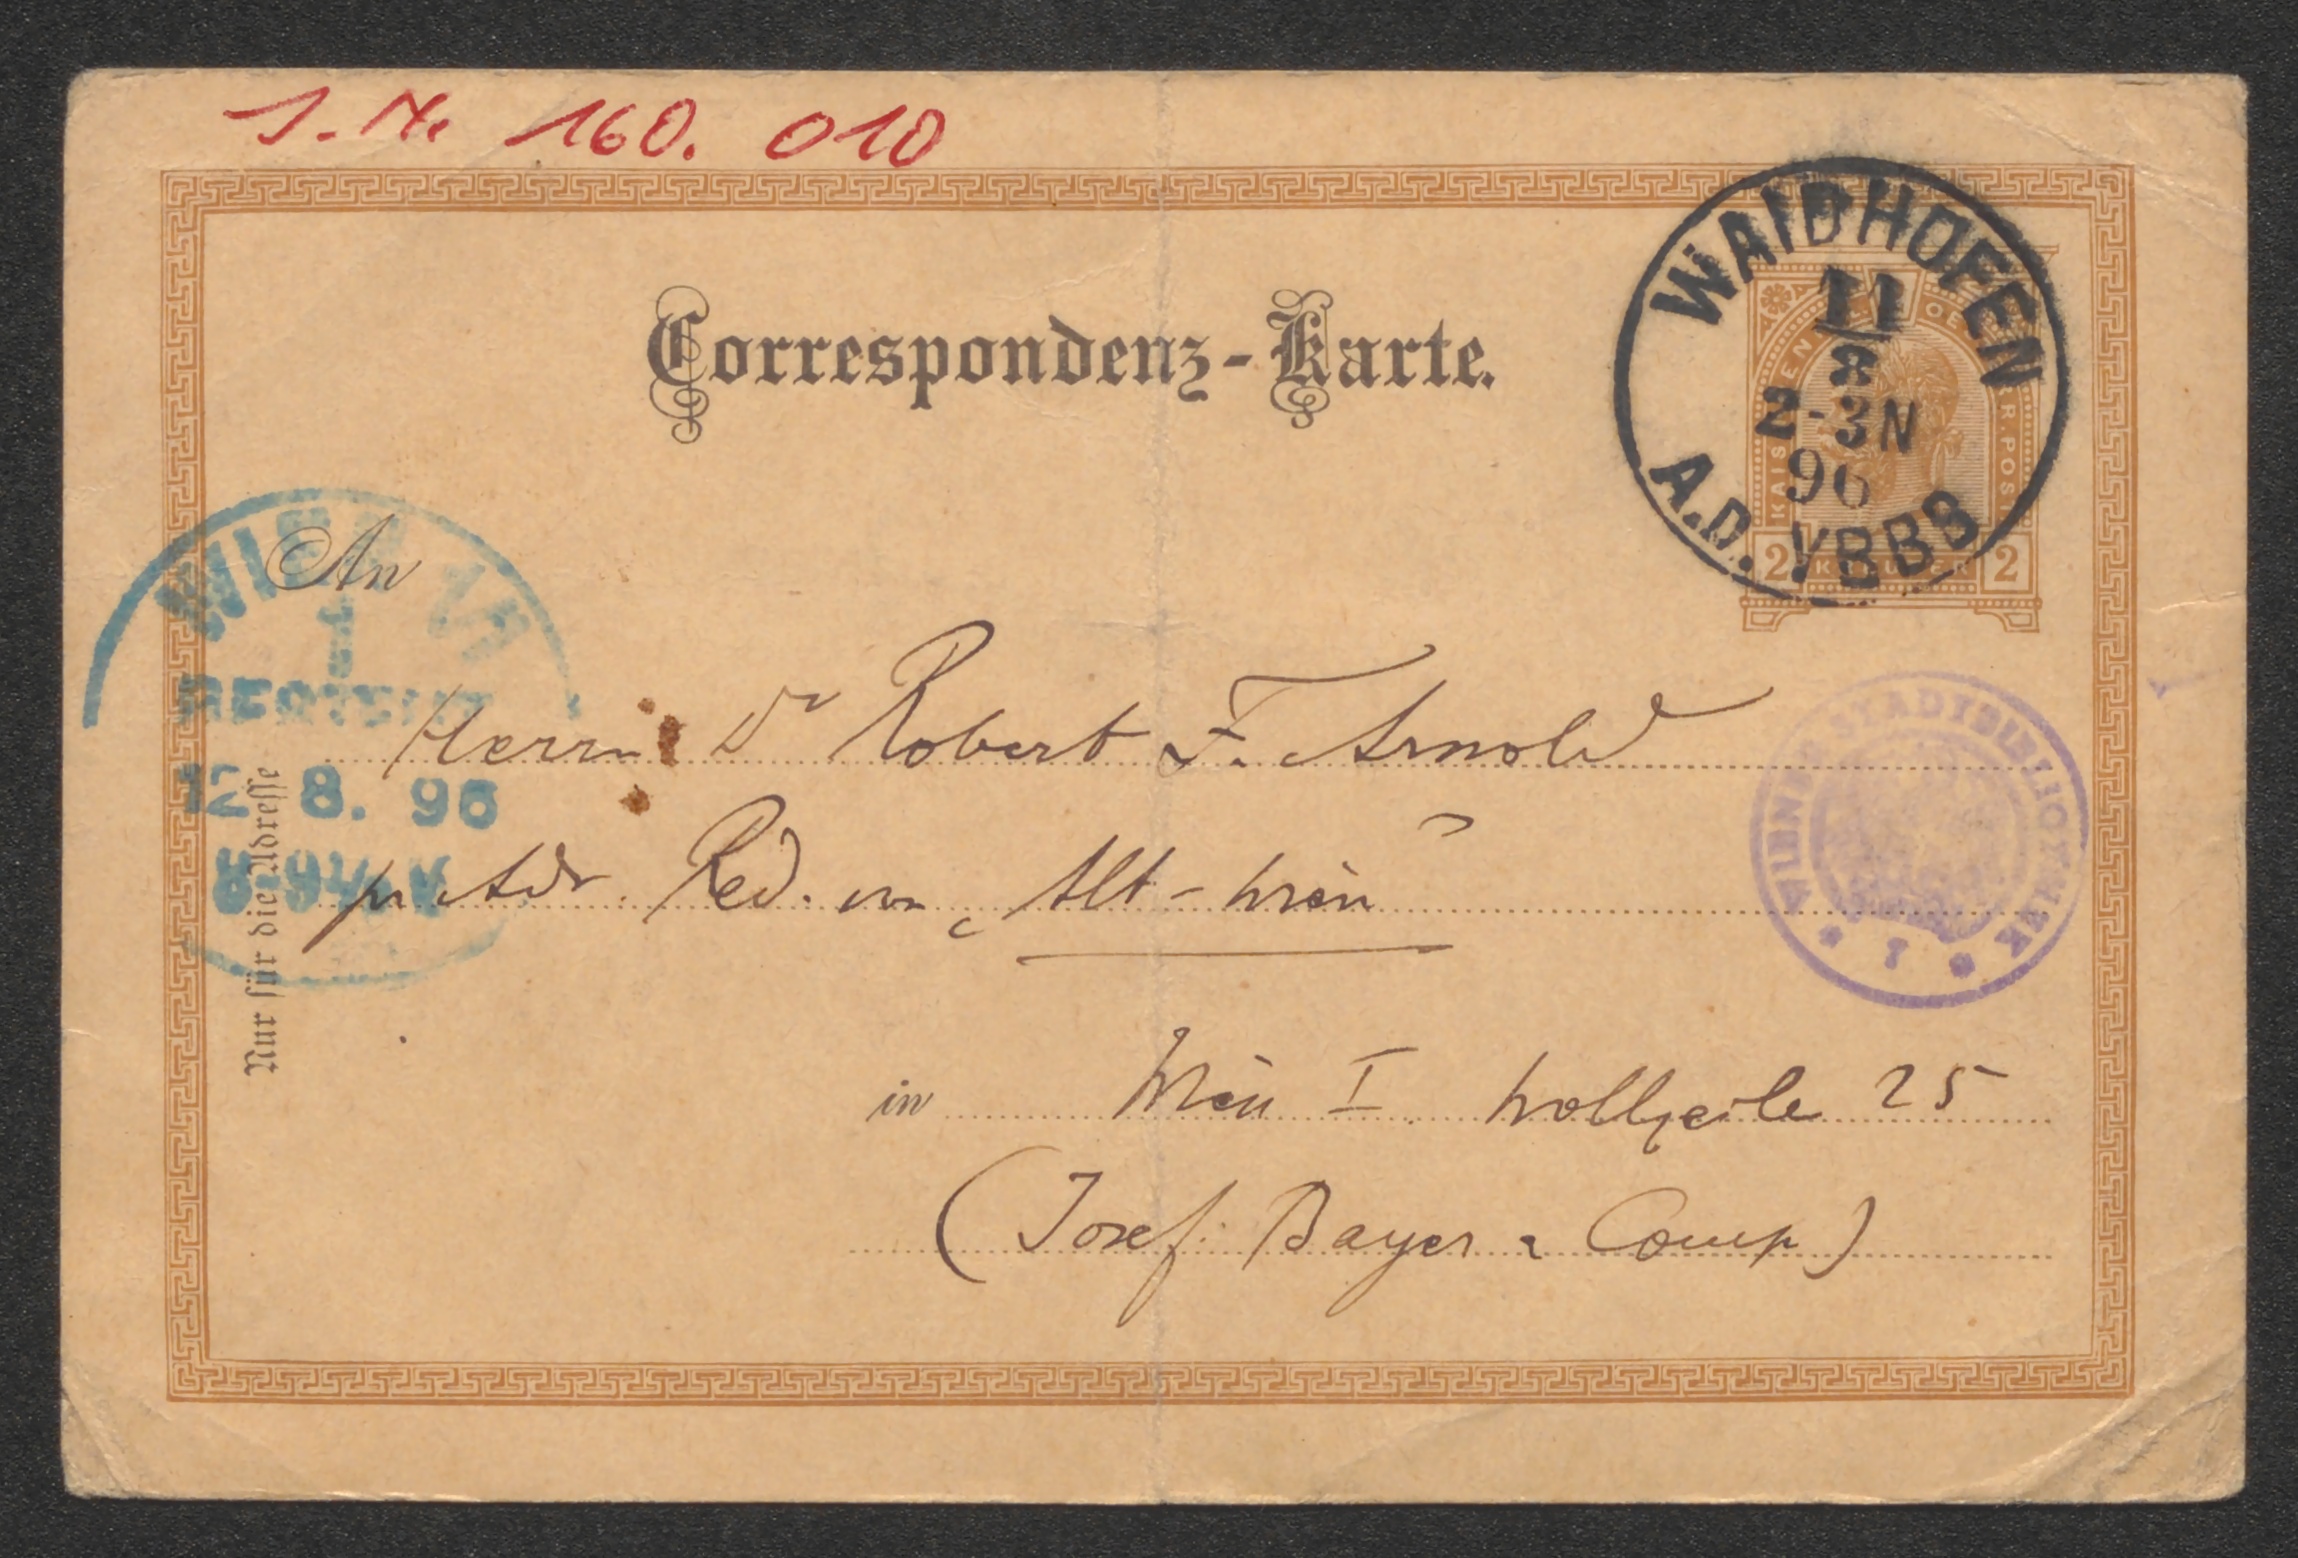 J.-N. 160.010
Correspondenz-Karte.
WAIDHOFEN
11
8
2-3N
96
A.D. YBBS
2 2
WIEN 1/1
1
BESTELLT
12. 8. 96
An
Herrn Dr Robert F. Arnold
pr Adr. Red. von „Alt-Wien"
WIENER STADTBIBLIOTHEK
in Wien I Wollzeile 25
(Josef Bayer & Comp)
Nur für die Adresse